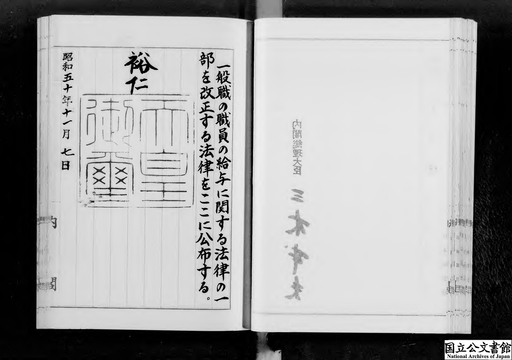 一般職の職員の給与に関する法律の一
部を改正する法律をここに公布する。
裕仁
天皇
御璽
昭和五十年十一月七日
内閣
内閣総理大臣
三木武夫
国立公文書館
National Archives of Japan